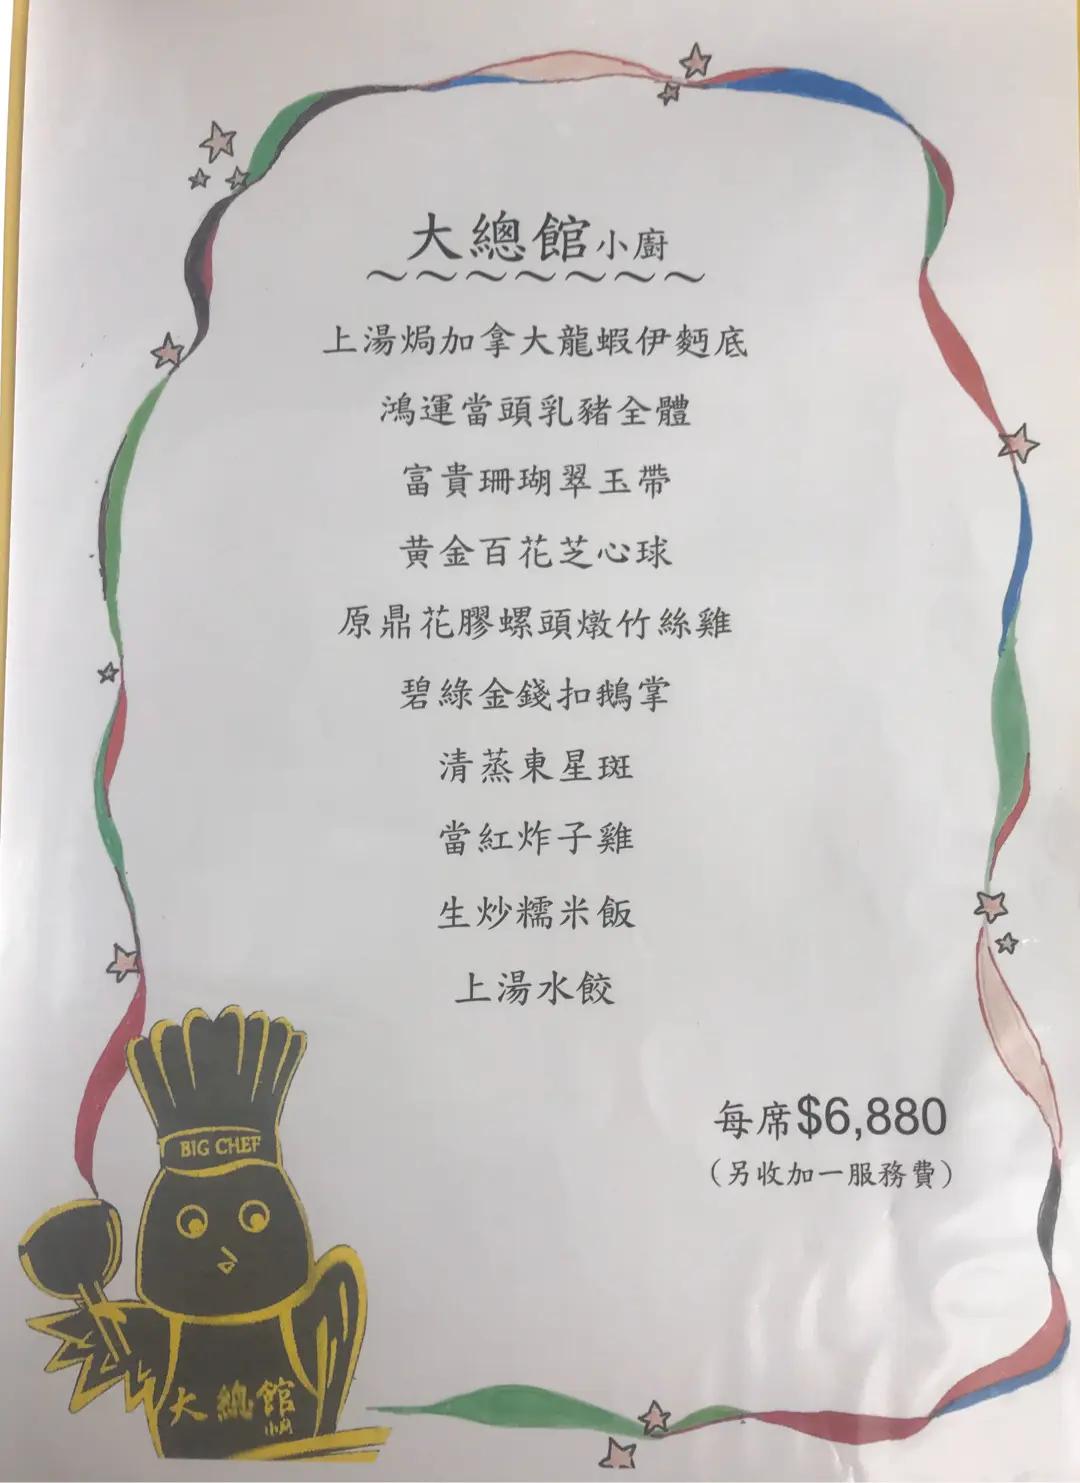 大總館小廚
～～～～～～～
上湯焗加拿大龍蝦伊麪底
鴻運當頭乳豬全體
富貴珊瑚翠玉帶
黄金百花芝心球
原鼎花膠螺頭燉竹絲雞
碧綠金錢扣鵝掌
清蒸東星斑
當紅炸子雞
生炒糯米飯
上湯水餃
每席$6,880
（另收加一服務費）
BIG CHEF
大總館
小廚